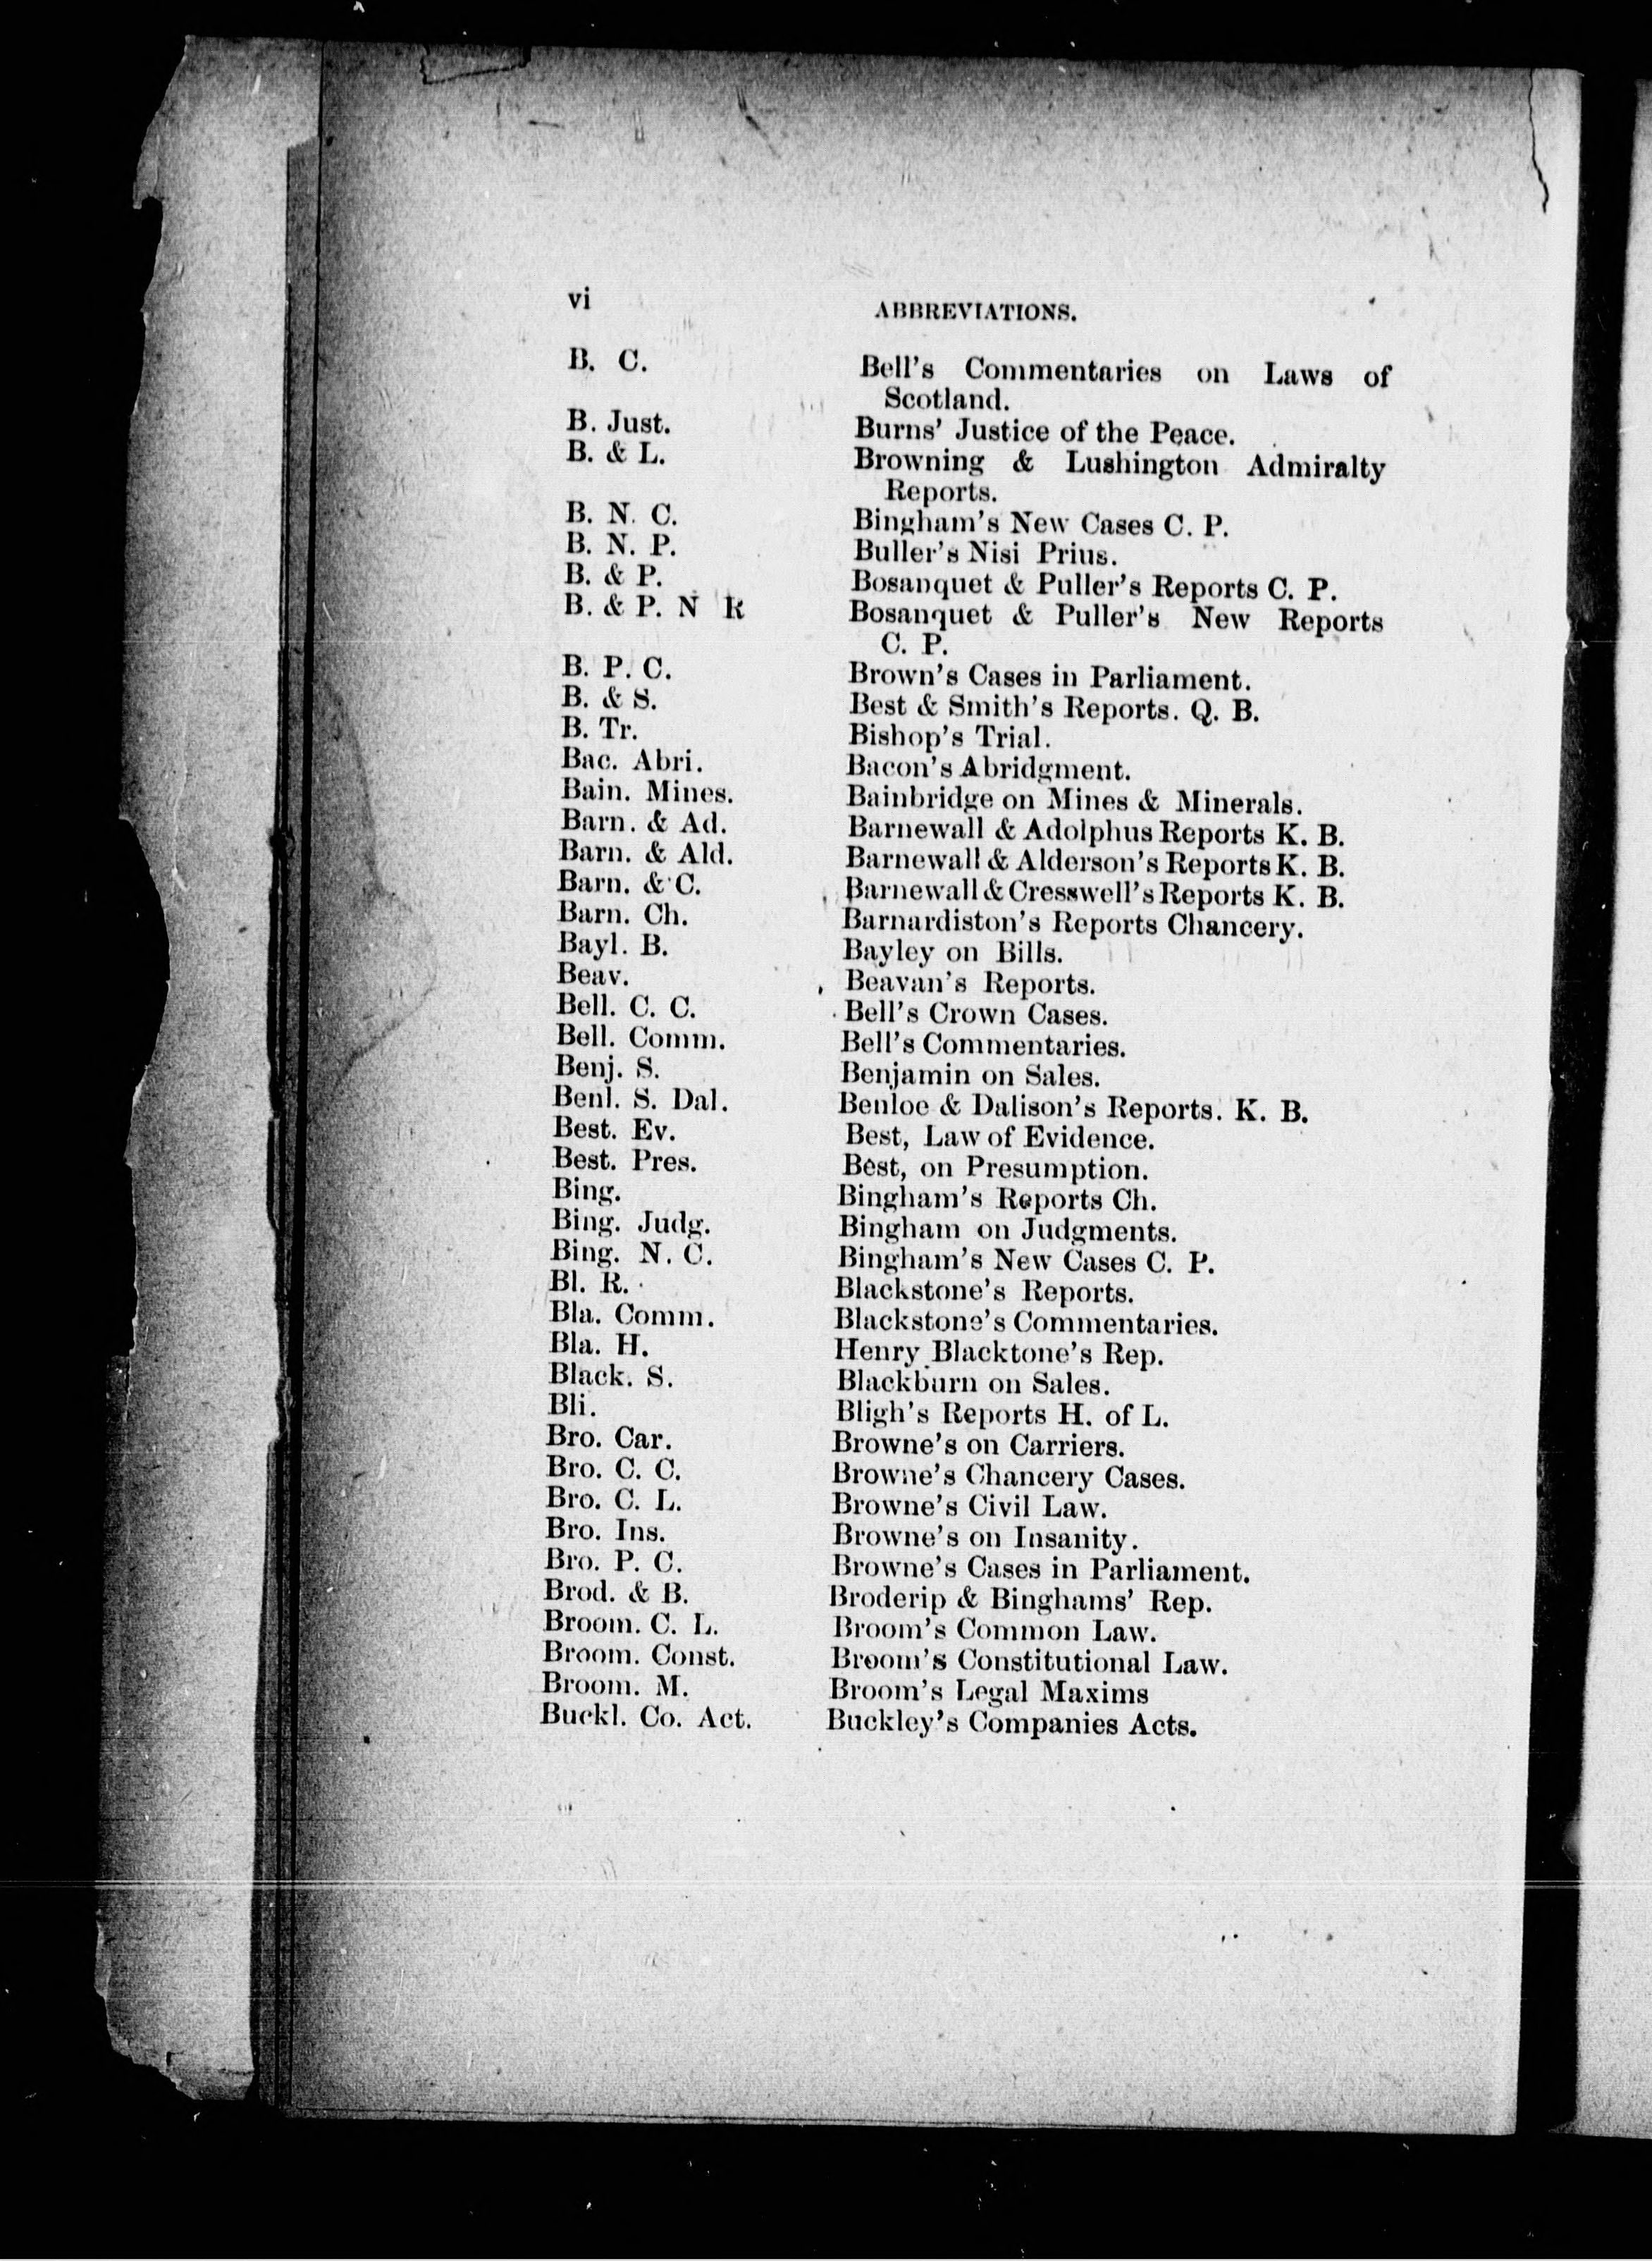 vi ABBREVIATIONS.
B. C. Bell's Commentaries on Laws of
Scotland.
B. Just. Burns' Justice of the Peace.
B. & L. Browning & Lushington Admiralty
Reports.
B. N. C. Bingham's New Cases C. P.
B. N. P. Buller's Nisi Prius.
B. & P. Bosanquet & Puller's Reports C. P.
B. & P. N R Bosanquet & Puller's New Reports
C. P.
B. P. C. Brown's Cases in Parliament.
B. & S. Best & Smith's Reports. Q. B.
B. Tr. Bishop's Trial.
Bac. Abri. Bacon's Abridgment.
Bain. Mines. Bainbridge on Mines & Minerals.
Barn. & Ad. Barnewall & Adolphus Reports K. B.
Barn. & Ald. Barnewall & Alderson's Reports K. B.
Barn. & C. Barnewall & Cresswell's Reports K. B.
Barn. Ch. Barnardiston's Reports Chancery.
Bayl. B. Bayley on Bills.
Beav. Beavan's Reports.
Bell. C. C. Bell's Crown Cases.
Bell. Comm. Bell's Commentaries.
Benj. S. Benjamin on Sales.
Benl. S. Dal. Benloe & Dalison's Reports. K. B.
Best. Ev. Best, Law of Evidence.
Best. Pres. Best, on Presumption.
Bing. Bingham's Reports Ch.
Bing. Judg. Bingham on Judgments.
Bing. N. C. Bingham's New Cases C. P.
Bl. R. Blackstone's Reports.
Bla. Comm. Blackstone's Commentaries.
Bla. H. Henry Blacktone's Rep.
Black. S. Blackburn on Sales.
Bli. Bligh's Reports H. of L.
Bro. Car. Browne's on Carriers.
Bro. C. C. Browne's Chancery Cases.
Bro. C. L. Browne's Civil Law.
Bro. Ins. Browne's on Insanity.
Bro. P. C. Browne's Cases in Parliament.
Brod. & B. Broderip & Binghams' Rep.
Broom. C. L. Broom's Common Law.
Broom. Const. Broom's Constitutional Law.
Broom. M. Broom's Legal Maxims
Buckl. Co. Act. Buckley's Companies Acts.